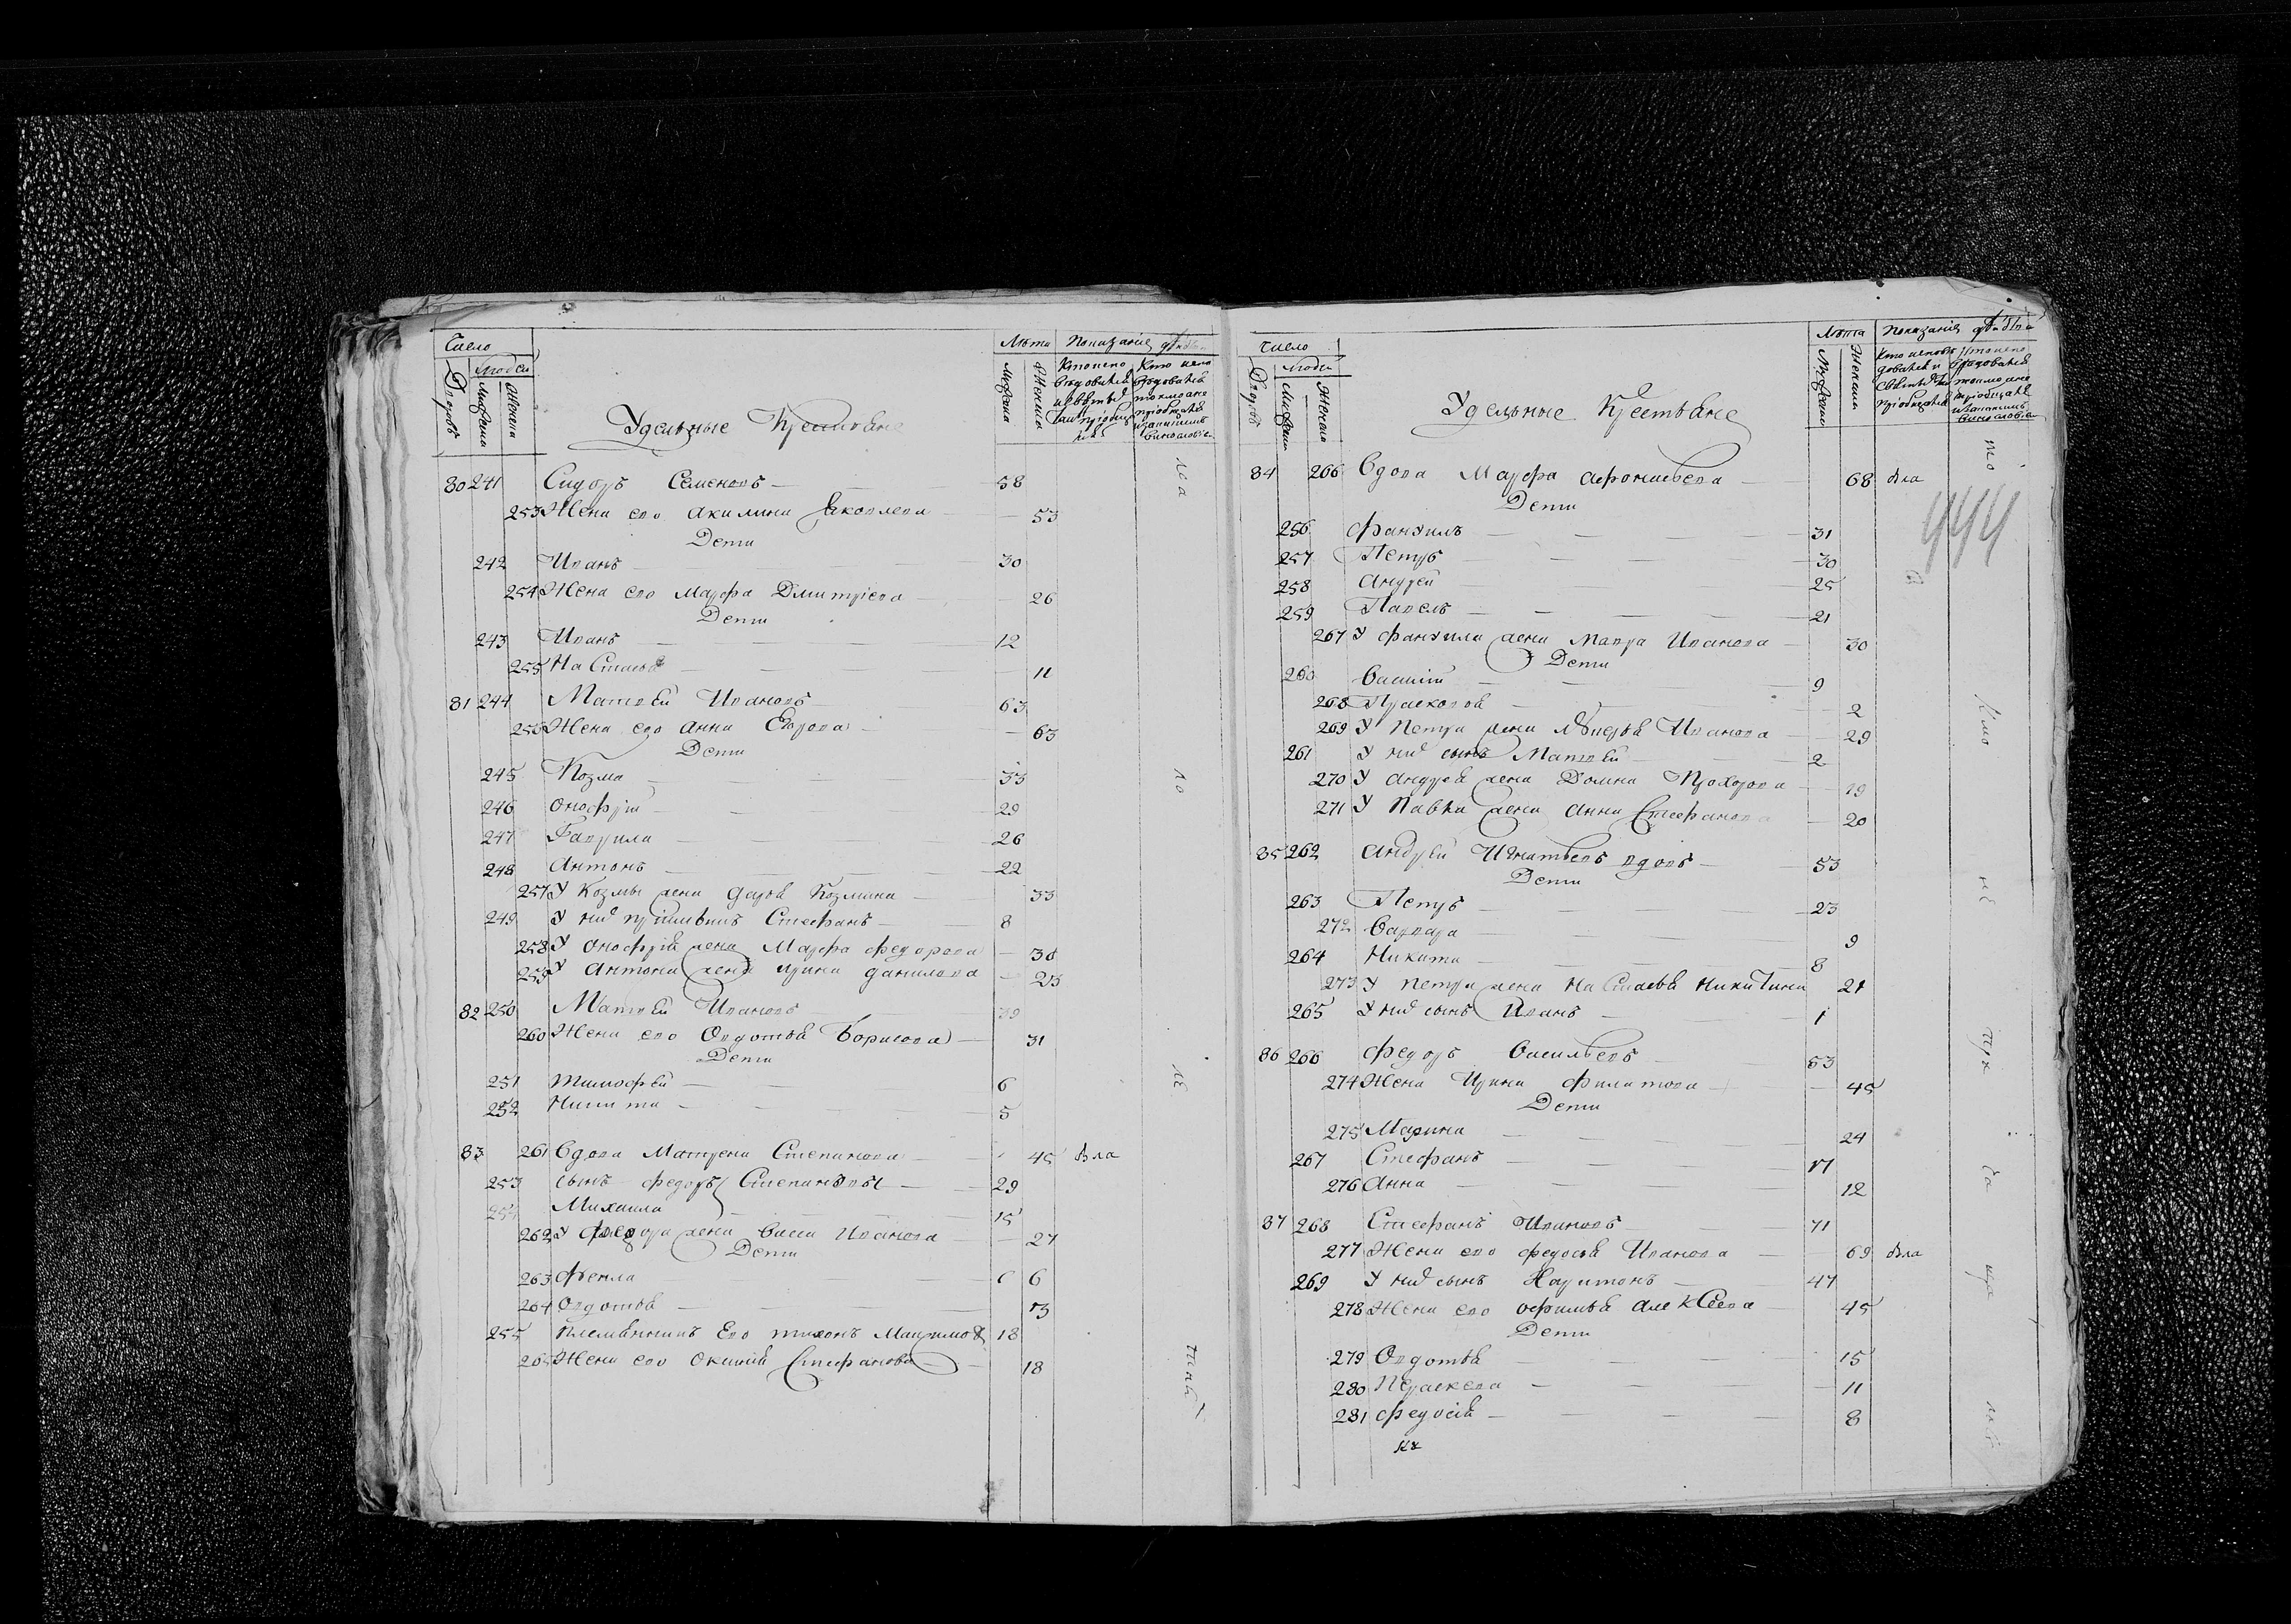 Число
Людей
Дворовъ
Мужеска
Женска
Удельные Крестьяне
Лѣта
Мужеска
Женска
Показаніе
80 241 Сидоръ Семеновъ 58
253 Жена его Акилина Яковлева 53
Дети
242 Иванъ 30
254 Жена его Марфа Дмитріева 26
Дети
243 Иванъ 12
255 Настасья 11
81 244 Матвей Ивановъ 63
256 Жена его Анна Егорова 63
Дети
245 Козма 33
246 Онофрій 29
247 Гаврила 26
248 Антонъ 22
257 У Козмы жена Дарья Козмина 33
249 У них Стефанъ 8
258 У Онофрія жена Марфа Федорова 30
259 У Антона жена Ирина Данилова 23
82 250 Матвей Ивановъ 39
260 Жена его Овдотья Борисова 31
Дети
251 Тимофей 6
252 Никита 5
83 261 Вдова Матрена Степанова 45 вла
253 сынъ Федоръ Степановы 29
254 Михаила 15
262 У Федора жена Васса Иванова 27
Дети
263 Фекла 6
264 Овдотья
255 племянникъ Его Тихонъ 18
265 Жена его Стефанова 18
Число
Людей
Дворовъ
Мужеска
Женска
Удельные Крестьяне
Лѣта
Мужеска
Женска
Показаніе
444
84 266 Вдова Марфа Афонасьева 68 вла
Дети
256 Фанфилъ 31
257 Петръ 30
258 Андрей 25
259 Павелъ 21
267 У Фанфила жена Мавра Иванова 30
Дети
260 Василій 9
268 Прасковья 2
269 У Петра жена Иванова 29
261 У них сынъ Матвей 2
270 У Андрея жена Домна Прохорова 19
271 У Павла жена Анна Стефанова 20
85 262 Андрей Игнатьевъ вдовъ 53
Дети
263 Петръ 23
272 Варвара 9
264 Никита 8
273 У Петра жена Настасья Никитина 21
265 У них сынъ Иванъ 1
86 266 Федоръ Васильевъ 53
274 Жена Ирина Филатова 45
Дети
275 Марина 24
267 Стефанъ 17
276 Анна 12
87 268 Стефанъ Ивановъ 71
277 Жена его Федосья Иванова 69 вла
269 У них сынъ Харитонъ 47
278 Жена его Офимья Алексеева 45
Дети
279 Овдотья 15
280 Праскева 11
281 Федосья 8